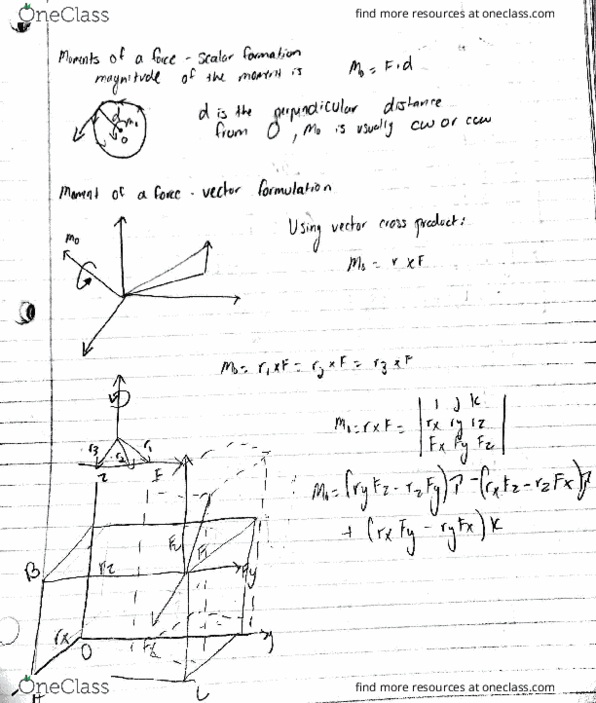 OneClass
find more resources at oneclass.com
Moments of a force - scalar formation
magnitude of the moment is
Mo = F·d
d is the perpendicular distance
from O, Mo is usually cw or ccw
d
Mo
O
Moment of a force - vector formulation
Using vector cross product:
Mo = r x F
Mo
Mo = r1 x F = r2 x F = r3 x F
i j k
Mo = r x F =
rx ry rz
Fx Fy Fz
r3 r2 r1
Mo = (ry Fz - rz Fy) i - (rx Fz - rz Fx) j
+ (rx Fy - ry Fx) k
Fz
F
B
rz
Fy
rx
O
Fx
y
OneClass
find more resources at oneclass.com